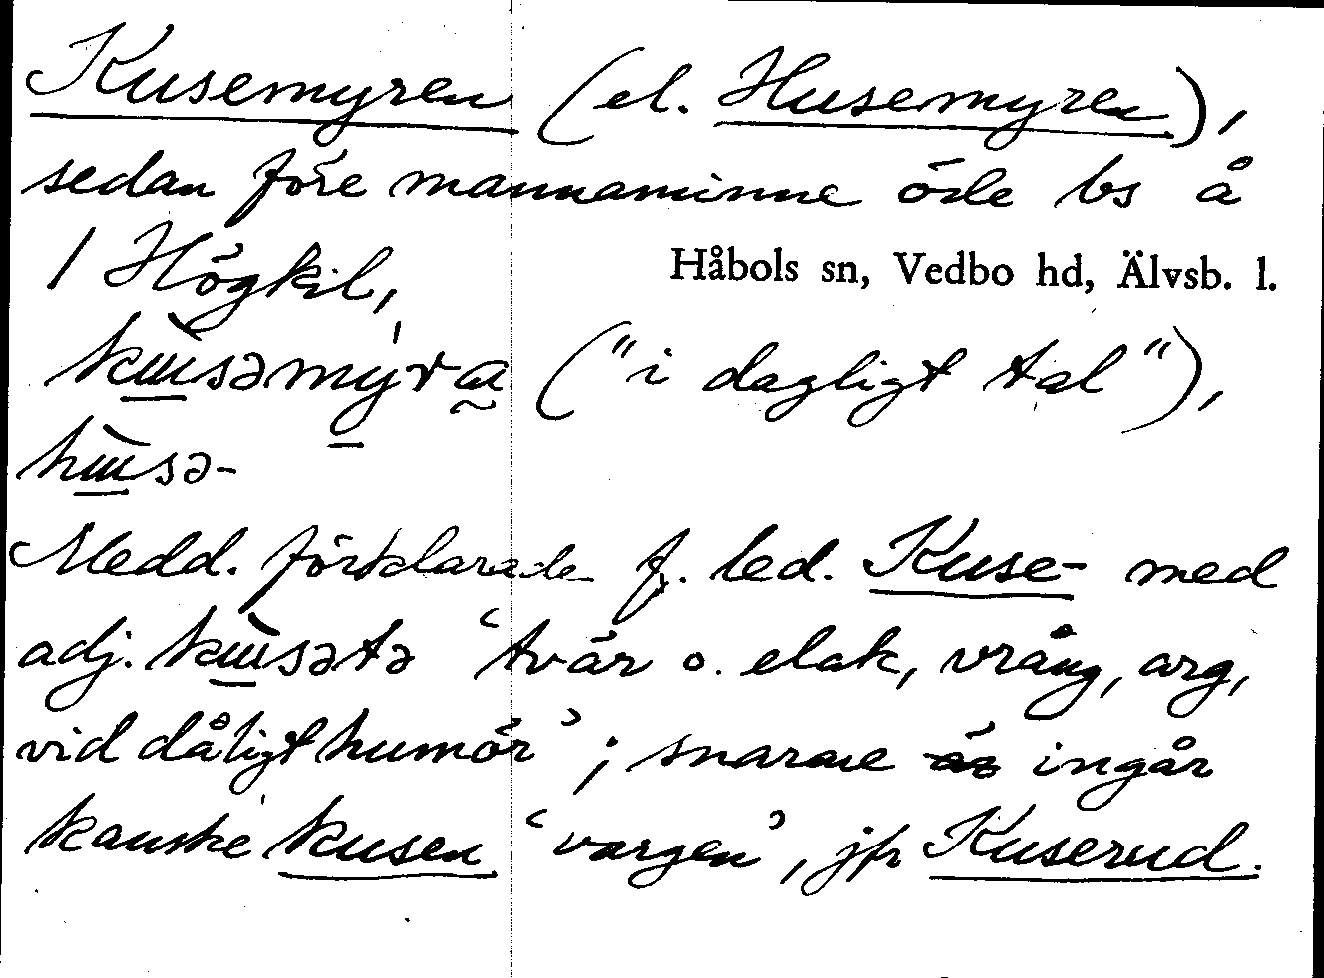 Kusemyren (el. Husemyren),
sedan före mannaminne öde bs å
1 Högkil,
Håbols sn, Vedbo hd, Älvsb. l.
kɯ̀səmýra ("i dagligt tal"),
hɯ̀sə-
Medd. förklarade f. led. Kuse- med
adj. kɯ̀sətə ‘tvär o. elak, vrång, arg,
vid dåligt humör’; snarare ingår
kanske kusen ‘vargen’, jfr Kuserud.